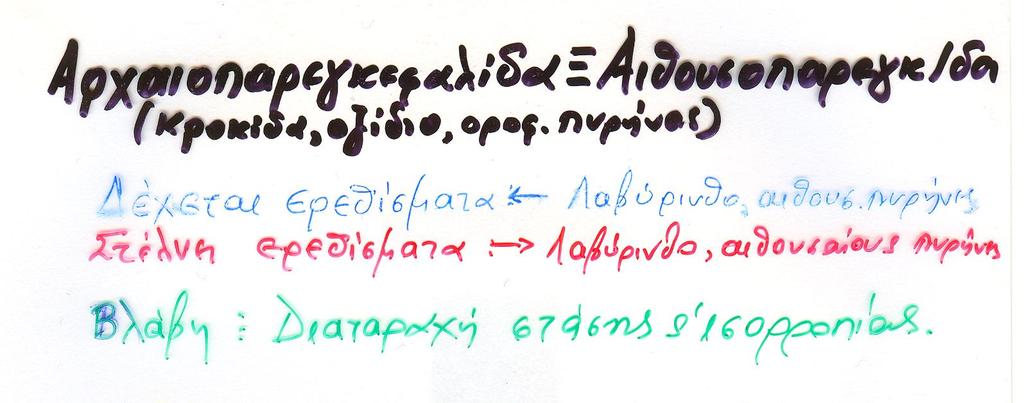 Αρχαιοπαρεγκεφαλίδα Ξ Αιθουσοπαρεγκ/δα
(κροκίδα, οζίδιο, οροφ. πυρήνας)
Δέχεται ερεθίσματα ← Λαβύρινθο, αιθουσ. πυρήνες
Στέλνει ερεθίσματα → Λαβύρινθο, αιθουσαίους πυρήνες
Βλάβη : Διαταραχή στάσης & ισορροπίας.